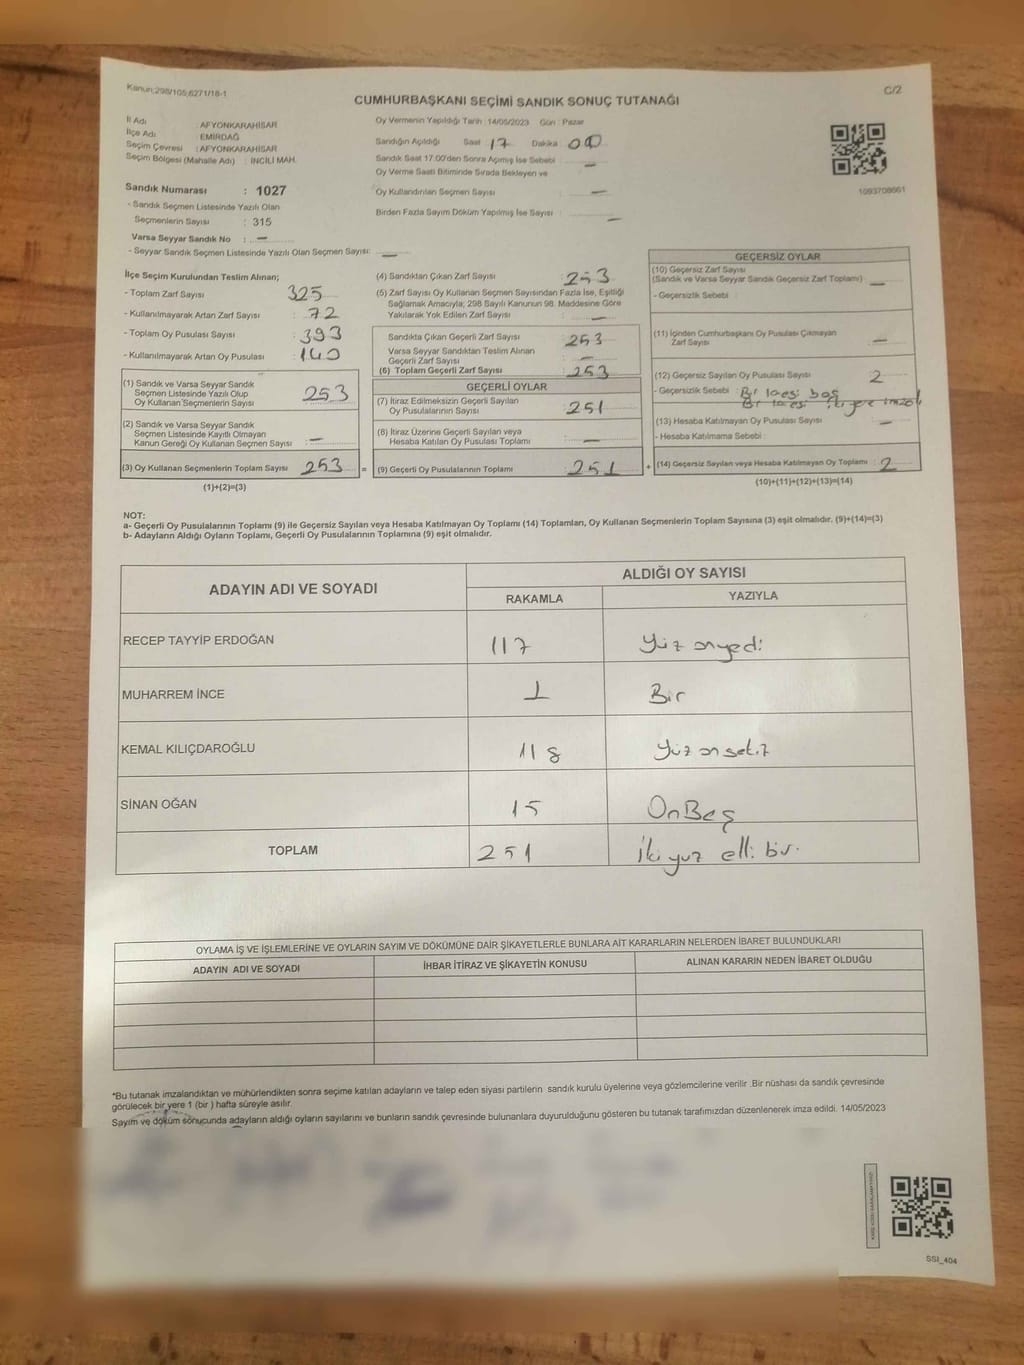 Kanun;298/105;6271/18-1
C/2
CUMHURBAŞKANI SEÇİMİ SANDIK SONUÇ TUTANAĞI
İl Adı : AFYONKARAHİSAR
İlçe Adı : EMİRDAĞ
Seçim Çevresi : AFYONKARAHİSAR
Seçim Bölgesi (Mahalle Adı) : İNCİLİ MAH.
Sandık Numarası : 1027
- Sandık Seçmen Listesinde Yazılı Olan
Seçmenlerin Sayısı : 315
Varsa Seyyar Sandık No : —
- Seyyar Sandık Seçmen Listesinde Yazılı Olan Seçmen Sayısı: —
Oy Vermenin Yapıldığı Tarih : 14/05/2023 Gün : Pazar
Sandığın Açıldığı Saat 17 Dakika 00
Sandık Saat 17.00'den Sonra Açımış İse Sebebi : —
Oy Verme Saati Bitiminde Sırada Bekleyen ve
Oy Kullandırılan Seçmen Sayısı : —
Birden Fazla Sayım Döküm Yapılmış İse Sayısı : —
1093708661
İlçe Seçim Kurulundan Teslim Alınan;
- Toplam Zarf Sayısı : 325
- Kullanılmayarak Artan Zarf Sayısı : 72
- Toplam Oy Pusulası Sayısı : 393
- Kullanılmayarak Artan Oy Pusulası : 140
(1) Sandık ve Varsa Seyyar Sandık
Seçmen Listesinde Yazılı Olup
Oy Kullanan Seçmenlerin Sayısı : 253
(2) Sandık ve Varsa Seyyar Sandık
Seçmen Listesinde Kayıtlı Olmayan
Kanun Gereği Oy Kullanan Seçmen Sayısı : —
(3) Oy Kullanan Seçmenlerin Toplam Sayısı : 253 =
(1)+(2)=(3)
(4) Sandıktan Çıkan Zarf Sayısı : 253
(5) Zarf Sayısı Oy Kullanan Seçmen Sayısından Fazla İse, Eşitliği
Sağlamak Amacıyla; 298 Sayılı Kanunun 98. Maddesine Göre
Yakılarak Yok Edilen Zarf Sayısı : —
Sandıkta Çıkan Geçerli Zarf Sayısı : 253
Varsa Seyyar Sandıktan Teslim Alınan
Geçerli Zarf Sayısı : —
(6) Toplam Geçerli Zarf Sayısı : 253
GEÇERLİ OYLAR
(7) İtiraz Edilmeksizin Geçerli Sayılan
Oy Pusulalarının Sayısı : 251
(8) İtiraz Üzerine Geçerli Sayılan veya
Hesaba Katılan Oy Pusulası Toplamı : —
(9) Geçerli Oy Pusulalarının Toplamı : 251 +
GEÇERSİZ OYLAR
(10) Geçersiz Zarf Sayısı
(Sandık ve Varsa Seyyar Sandık Geçersiz Zarf Toplamı) : —
- Geçersizlik Sebebi :
(11) İçinden Cumhurbaşkanı Oy Pusulası Çıkmayan
Zarf Sayısı : —
(12) Geçersiz Sayılan Oy Pusulası Sayısı : 2
- Geçersizlik Sebebi : Bir boş
Bir iki yere
(13) Hesaba Katılmayan Oy Pusulası Sayısı : —
- Hesaba Katılmama Sebebi :
(14) Geçersiz Sayılan veya Hesaba Katılmayan Oy Toplamı : 2
(10)+(11)+(12)+(13)=(14)
NOT:
a- Geçerli Oy Pusulalarının Toplamı (9) ile Geçersiz Sayılan veya Hesaba Katılmayan Oy Toplamı (14) Toplamları, Oy Kullanan Seçmenlerin Toplam Sayısına (3) eşit olmalıdır. (9)+(14)=(3)
b- Adayların Aldığı Oyların Toplamı, Geçerli Oy Pusulalarının Toplamına (9) eşit olmalıdır.
ADAYIN ADI VE SOYADI ALDIĞI OY SAYISI
RAKAMLA YAZIYLA
RECEP TAYYİP ERDOĞAN 117 Yüz onyedi
MUHARREM İNCE 1 Bir
KEMAL KILIÇDAROĞLU 118 Yüz on sekiz
SİNAN OĞAN 15 OnBeş
TOPLAM 251 İki yuz elli bir.
OYLAMA İŞ VE İŞLEMLERİNE VE OYLARIN SAYIM VE DÖKÜMÜNE DAİR ŞİKAYETLERLE BUNLARA AİT KARARLARIN NELERDEN İBARET BULUNDUKLARI
ADAYIN ADI VE SOYADI İHBAR İTİRAZ VE ŞİKAYETİN KONUSU ALINAN KARARIN NEDEN İBARET OLDUĞU
*Bu tutanak imzalandıktan ve mühürlendikten sonra seçime katılan adayların ve talep eden siyasi partilerin sandık kurulu üyelerine veya gözlemcilerine verilir .Bir nüshası da sandık çevresinde
görülecek bir yere 1 (bir ) hafta süreyle asılır.
Sayım ve döküm sonucunda adayların aldığı oyların sayılarını ve bunların sandık çevresinde bulunanlara duyurulduğunu gösteren bu tutanak tarafımızdan düzenlenerek imza edildi. 14/05/2023
SSI_404